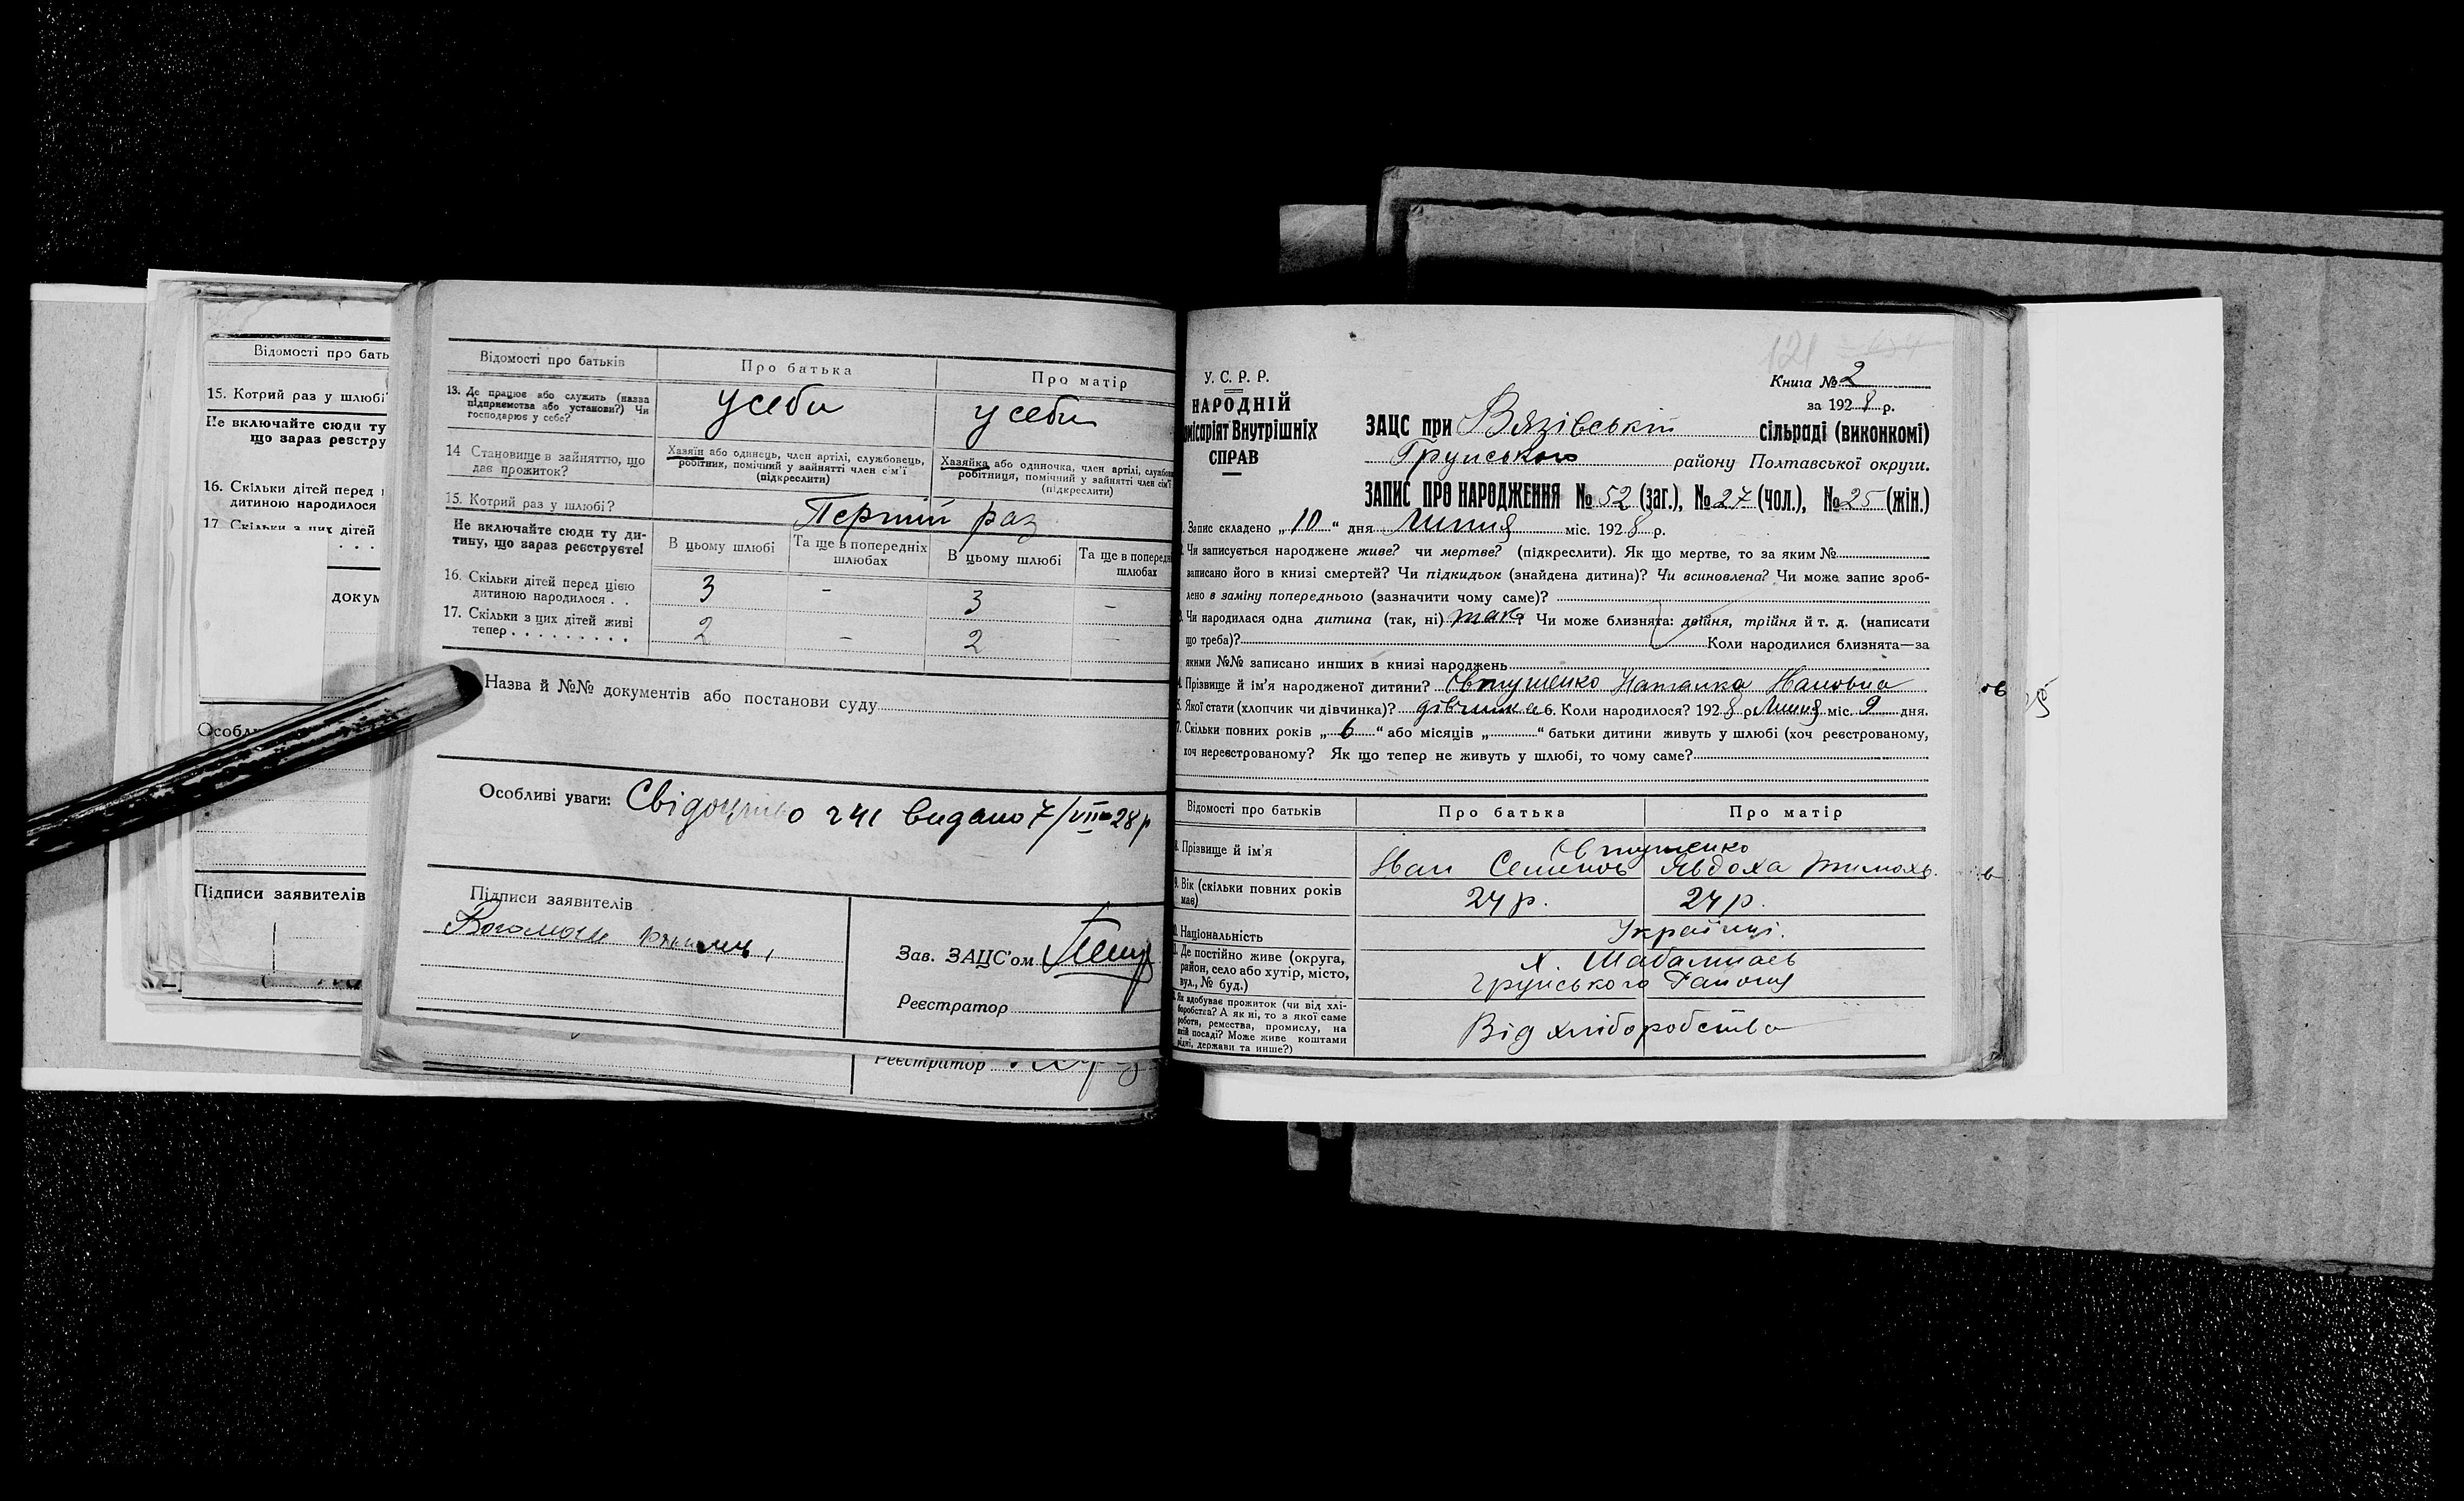 Відомості про бать
15. Котрий раз у шлюбі
Не включайте сюди ту
що зараз реєстру
16. Скільки дітей перед
дитиною народилося
17. Скільки з цих дітей
докум
Особл
Підписи заявителів
Відомості про батьків
Про батька
Про матір
13. Де працює або служить (назва
підприємства або установи?) Чи
господарює у себе?
усеби
усеби
14 Становище в зайняттю, що
дає прожиток?
Хазяїн або одинець, член артілі, службовець,
робітник, помічний у зайнятті член сім'ї
(підкреслити)
Хазяйка або одиночка, член артілі, службов
робітниця, помічний у зайнятті член сім'ї
(підкреслити)
15. Котрий раз у шлюбі?
Перший раз
Не включайте сюди ту ди-
тину, що зараз реєструєте!
В цьому шлюбі
Та ще в попередніх
шлюбах
В цьому шлюбі
Та ще в поперед
шлюбах
16. Скільки дітей перед цією
дитиною народилося . .
3 - 3 -
17. Скільки з цих дітей живі
тепер . . . . . . . . .
2 - 2 -
Назва й №№ документів або постанови суду
Особливі уваги: Свідоцтво 241 видано 7/VII-28 р
Підписи заявителів
Зав. ЗАЦС'ом
Реєстратор
Реєстратор
121
У. С. Р. Р.
НАРОДНІЙ
місаріят Внутрішніх
СПРАВ
Книга № 2
за 1928 р.
ЗАЦС при Вязівській сільраді (виконкомі)
Грунського району Полтавської округи.
ЗАПИС ПРО НАРОДЖЕННЯ № 52 (заг.), № 27 (чол.), № 25 (жін.)
Запис складено „10" дня Липня міс. 1928 р.
Чи записується народжене живе? чи мертве? (підкреслити). Як що мертве, то за яким №
записано його в книзі смертей? Чи підкидьок (знайдена дитина)? Чи всиновлена? Чи може запис зроб-
лено в заміну попереднього (зазначити чому саме)?
Чи народилася одна дитина (так, ні) так? Чи може близнята: двійня, трійня й т. д. (написати
що треба)? Коли народилися близнята—за
якими №№ записано инших в книзі народжень
Прізвище й ім'я народженої дитини? Овтушенко Наталка Івановна
Якої стати (хлопчик чи дівчинка)? дівчинка 6. Коли народилося? 1928 р. Липня міс. 9 дня.
Скільки повних років „6" або місяців „ " батьки дитини живуть у шлюбі (хоч реєстрованому,
хоч нереєстрованому? Як що тепер не живуть у шлюбі, то чому саме?
Відомості про батьків
Про батька
Про матір
Прізвище й ім'я
Овтушенко
Іван Семенов Явдоха Тимохв.
9. Вік (скільки повних років
має)
24 р. 24 р.
Національність
Українці.
Де постійно живе (округа,
район, село або хутір, місто,
вул., № буд.)
Грунського Району
Як здобуває прожиток (чи від хлі-
боробства? А як ні, то з якої саме
роботи, ремества, промислу, на
якій посаді? Може живе коштами
рідні, держави та инше?)
Від хліборобства